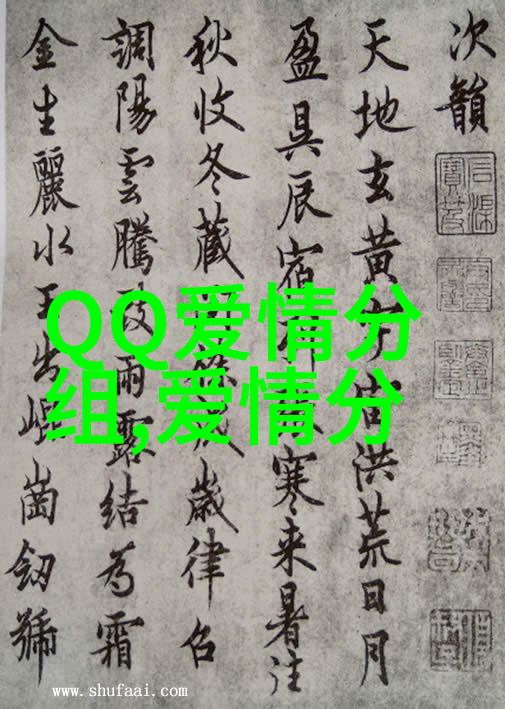 次韻
天地玄黄宙洪荒日月
盈昃辰宿寒来暑往
秋收冬藏歲律召
調陽雲騰致雨露結為霜
金生麗水玉出崐崗劒號
QQ爱情分
组,爱情分
www.shufaai.com